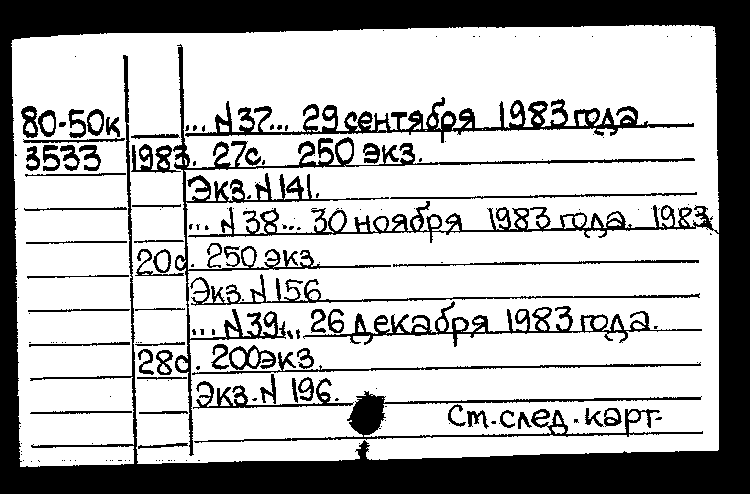 80-50к ... N37... 29 сентября 1983 года.
3533 1983. 27с. 250 экз.
Экз. N 141.
... N 38... 30 ноября 1983 года. 1983.
20с. 250 экз.
Экз. N 156
... N39... 26 декабря 1983 года.
28с. 200экз.
Экз. N 196.
Ст. след. карт.